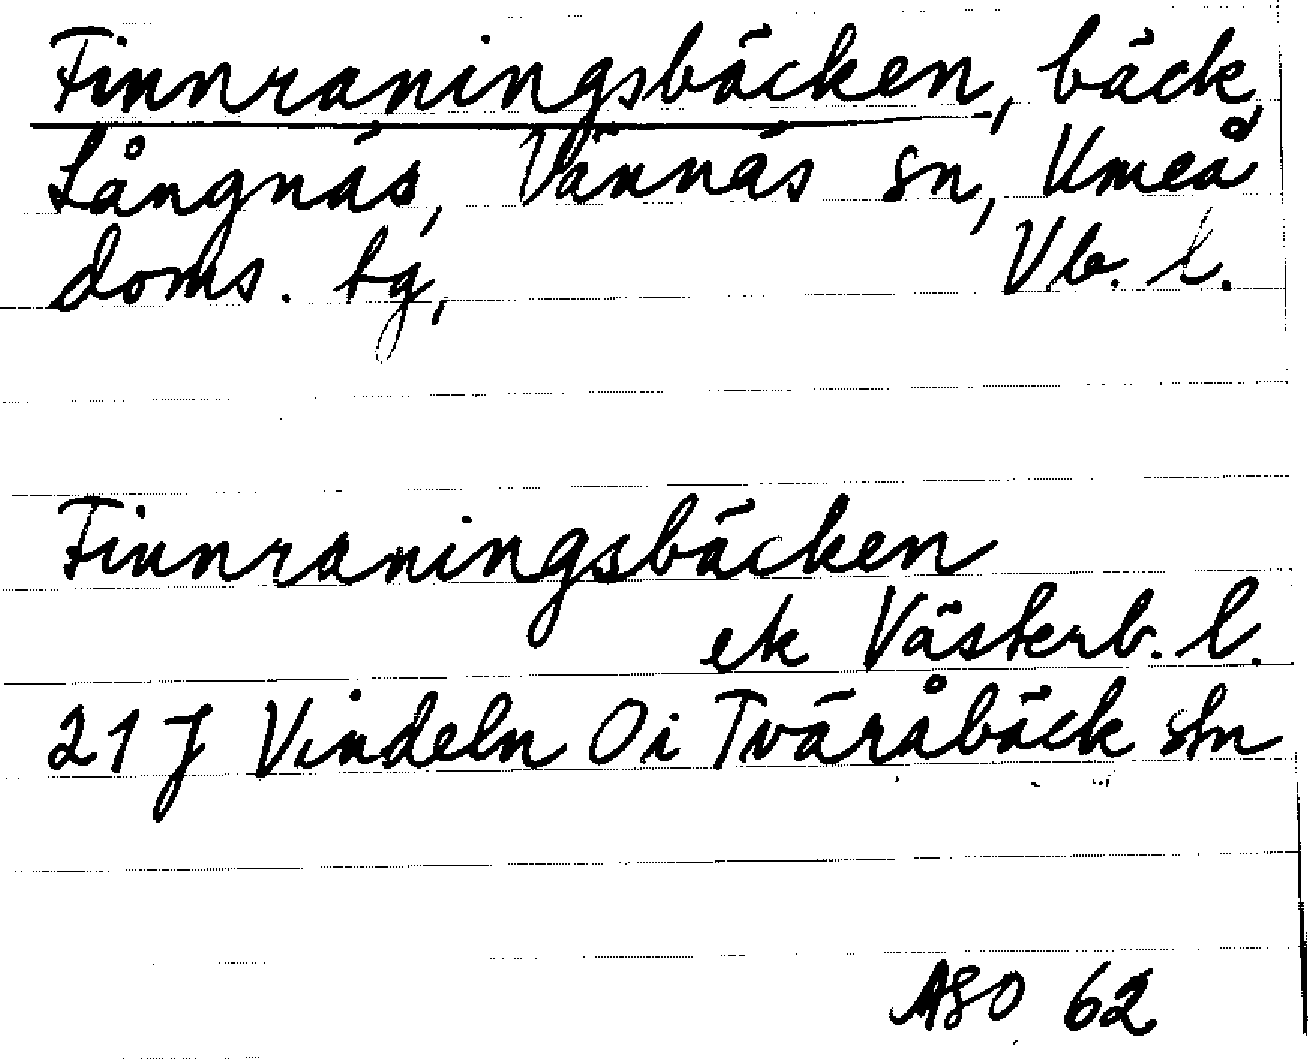 Finnraningsbäcken, bäck,
Långnäs, Vännäs sn, Umeå
doms. tg, Vb. l.
Finnraningsbäcken
ek Västerb. l.
21 J Vindeln Oi Tväråbäck stn
ASO 62